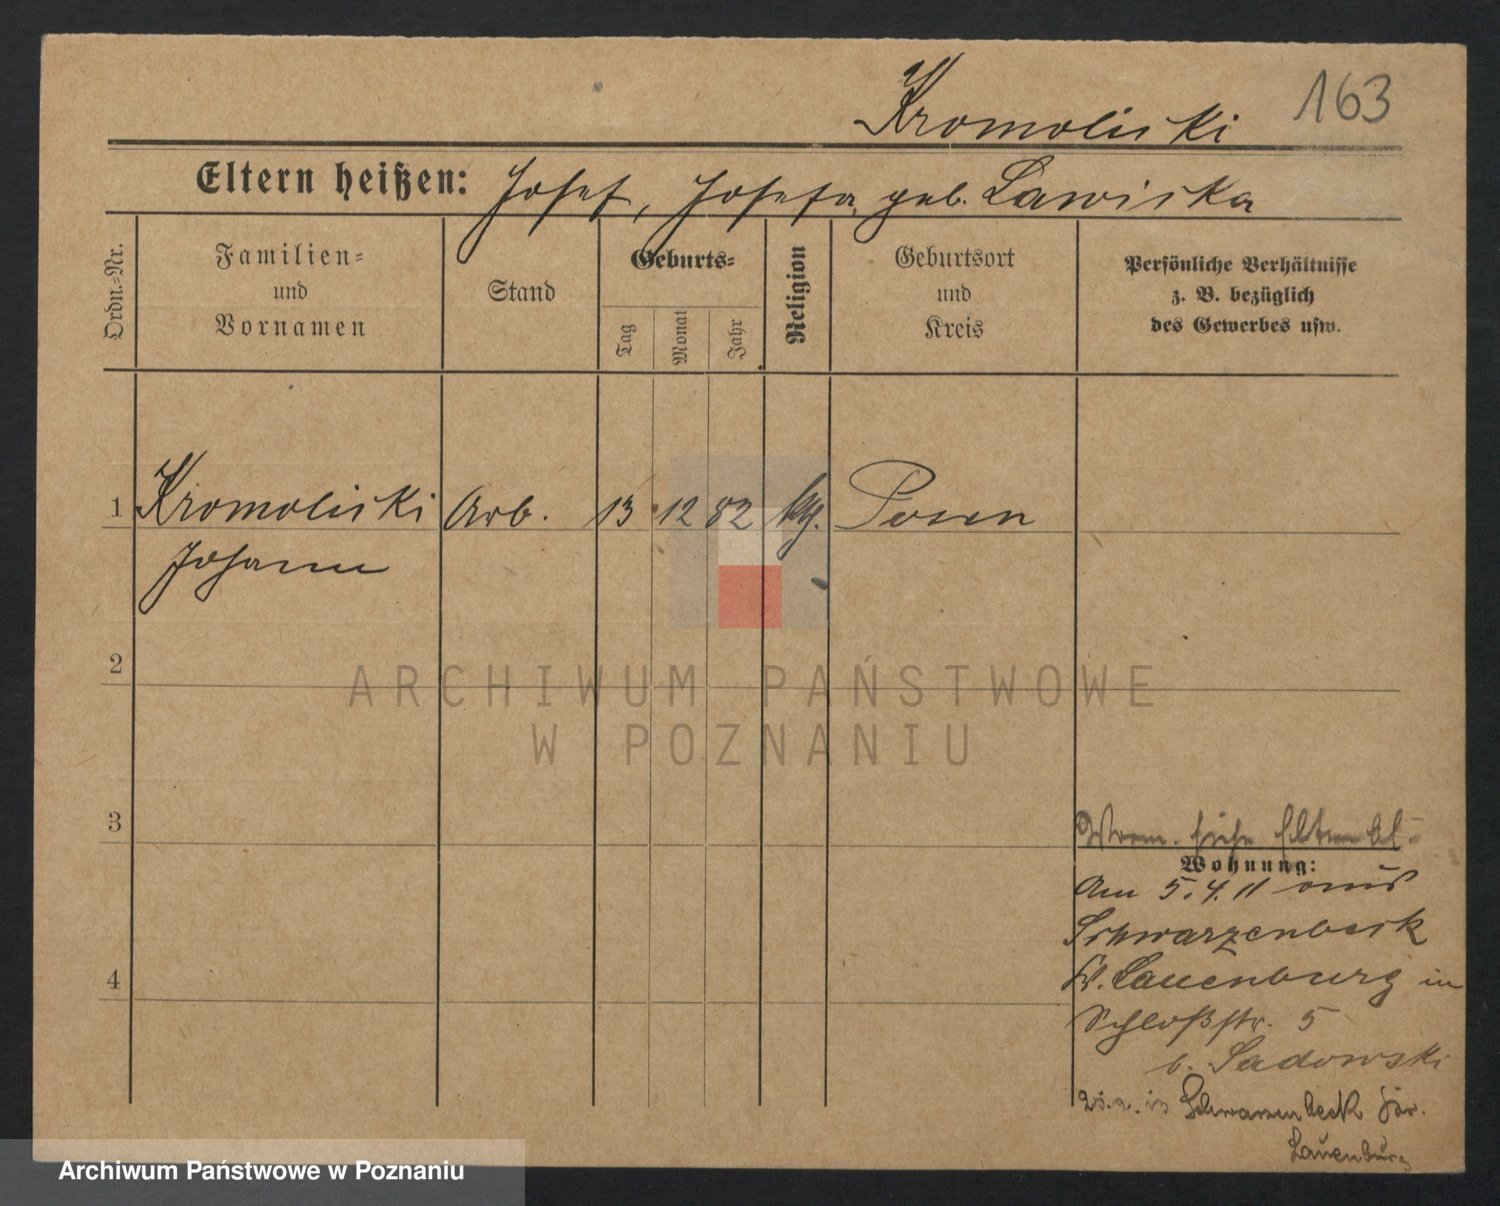 Kromoliski 163
Eltern heißen: Josef, Josefa geb. Lawiska
Ordn.-Nr.
Familien-
und
Vornamen
Stand
Geburts-
Tag
Monat
Jahr
Religion
Geburtsort
und
Kreis
Persönliche Verhältnisse
z. B. bezüglich
des Gewerbes usw.
1 Kromoliski Arb. 13 12 82 kth. Posen
Johann
2
ARCHIWUM PAŃSTWOWE
W POZNANIU
3
siehe
Wohnung:
Am 5.4.11 aus
Schwarzenbeck
Kr. Lauenburg in
Schloßstr. 5
b. Sadowski
4
in Schwarzenbeck
Lauenburg
Archiwum Państwowe w Poznaniu